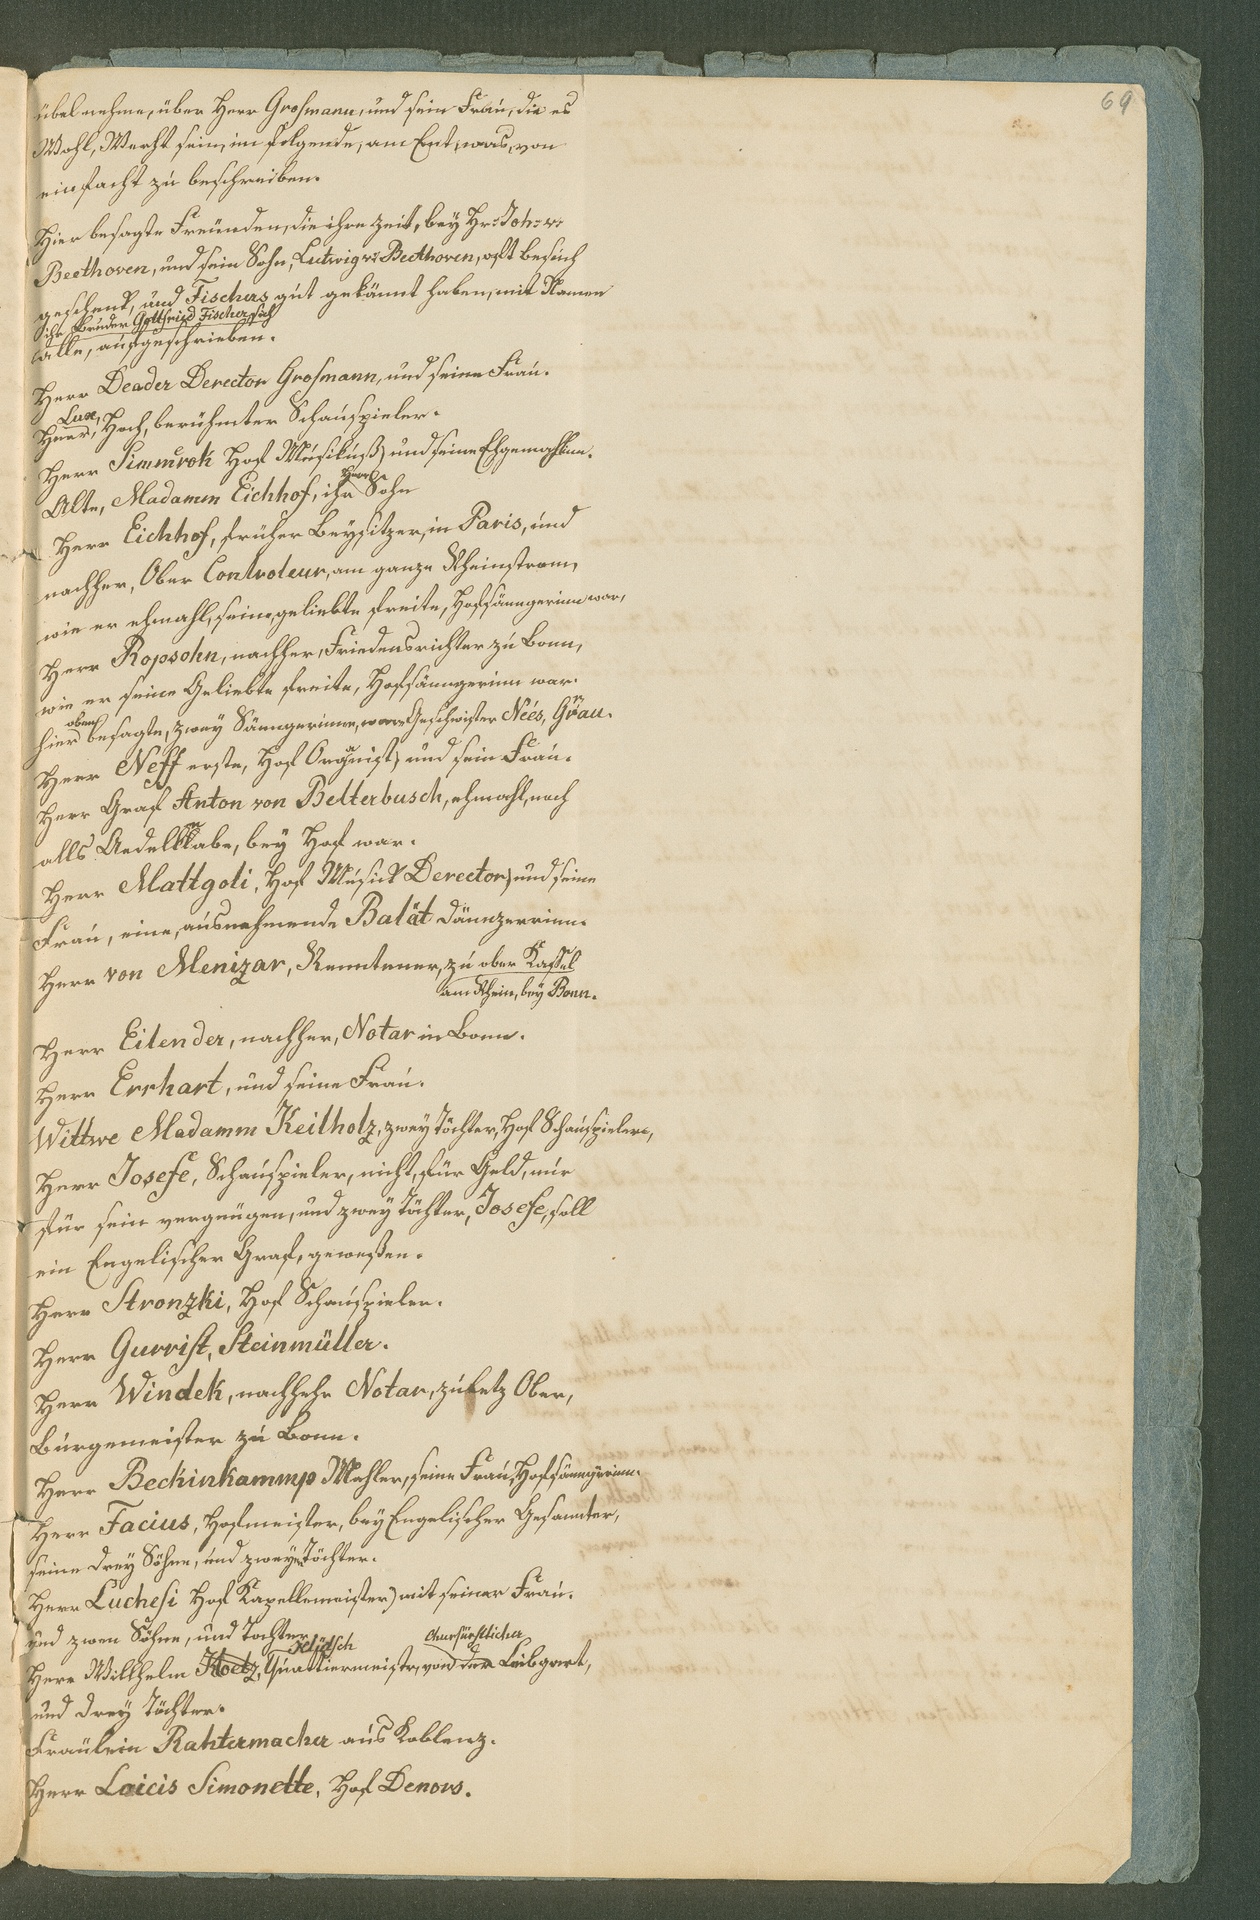 69
übel nehme, über Herr Großmann, und sein Frau, die es
Wohl, Werht sein, im folgende, am Ent, was, von
einfacht zu beschreiben.
Hier besagte Freünden, die ihre zeit, bey Hr: Joh: v:
Beethoven, und sein Sohn, Lutwig v: Beethoven, oft besuch
geschenk, und Fischers gut gekännt haben, mit Namen
ihr Bruder Gottfried Fischer sich
alle, aufgeschrieben.
Herr Deader Derector Großmann, und seine Frau.
Lux,
Herr, Hoch, berühmter Schauspieler.
Herr Simmrok Hof Musikuß) und seine Ehgemahlinn.
Herr
Alte, Madamm Eichhof, ihr Sohn
Herr Eichhof, früher Beysitzer, in Paris, und
nachher, Ober Controleur, am ganze Rheinstrom,
wie er ehmahl, seine, geliebte freite, Hofsänngerinn war,
Herr Ropsohn, nachher, Friedensrichter zu Bonn,
wie er seine Geliebte freite, Hofsänngerinn war.
oben
hier besagte, zwey Sänngerinne, ware Geschwister Neés, Grau.
Herr Neff erste, Hof Organist, und sein Frau.
Herr Graf Anton von Belterbusch, ehmahl, noch
alls Aedelknabe, bey Hof war.
Herr Mattgoli, Hof Musick Derector) und seine
Frau, eine, ausnehmende Balät Dännzerrinn.
Herr von Menizar, Renntener, zu ober Kaßel
am Rhein, bey Bonn.
Herr Eilender, nachher, Notar in Bonn.
Herr Errhart, und seine Frau.
Wittwe Madamm Keilholz, zwey Töchter, Hof Schauspieler,
Herr Josefe, Schauspieler, nicht, für Geld, nur
für sein vergnügen, und zwey Töchter, Josefe, soll
ein Engelischer Graf, geweßen.
Herr Stronzki, Hof Schauspieler.
Herr Gurrist, Steinmüller.
Herr Windek, nachhehr Notar, zuletz Ober,
Burgemeister zu Bonn.
Herr Beckinkammp Mahler, seine Frau, Hofsänngerinn.
Herr Facius, Hofmeister, bey Engelischer Gesannter,
seine drey Söhne, und zwey Töchter.
Herr Luchesi Hof Kapellemeister) mit seiner Frau.
und zwen Söhne, und Tochter
churfürstlicher
Herr Willhelm Quattiermeistr, von der Leibgart,
und drey Töchter.
Fräulein Rahtermacher aus Koblenz.
Herr Loicis Simonette, Hof Denors.